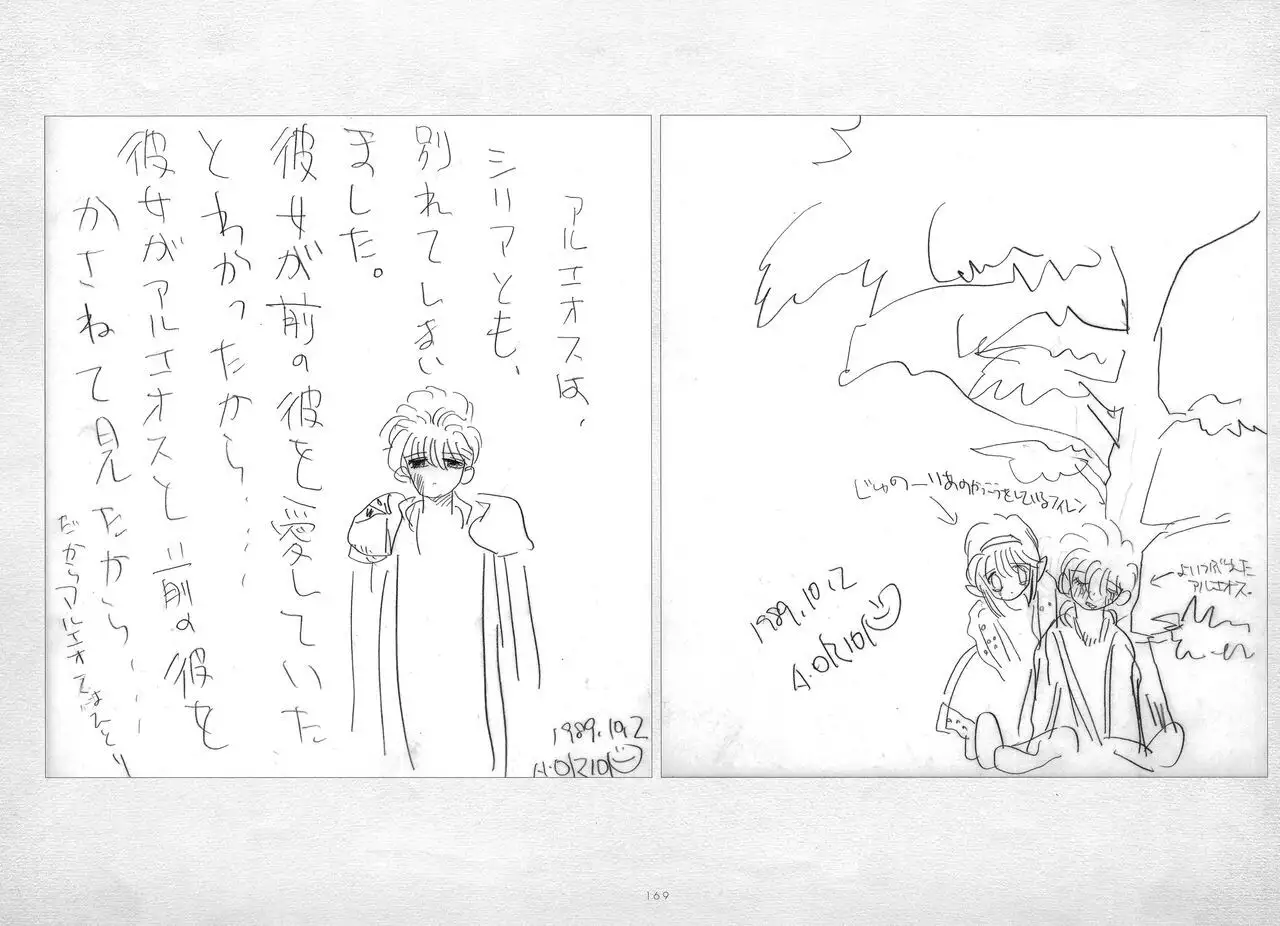 アルエオスは、
シリアとも、
別れてしまい
ました。
彼女が前の彼を愛していた
とわかったから……
彼女がアルエオスと前の彼を
かさねて見たから……
だからアルエオスはひとり
1989.10.2
A.ORION
じゅのーりあのかっこうをしているフィレン
アルエオス。
1989.10.2
A.ORION
169